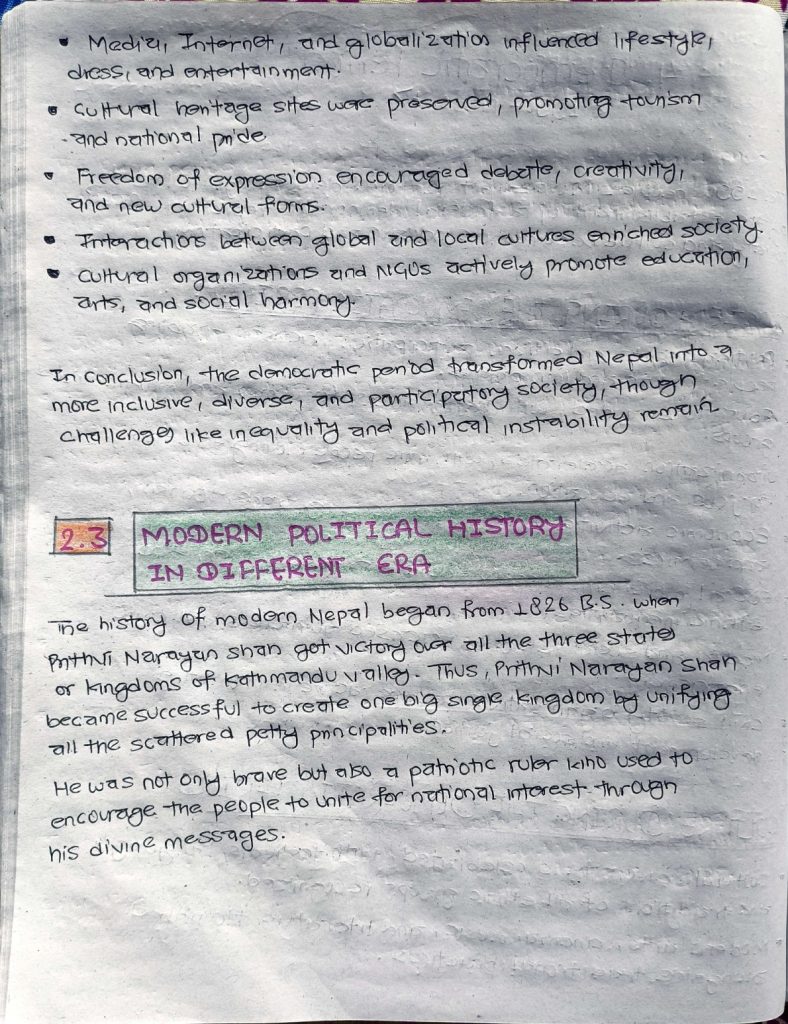 • Media, Internet, and globalization influenced lifestyle,
dress, and entertainment.
• Cultural heritage sites were preserved, promoting tourism
and national pride
• Freedom of expression encouraged debate, creativity,
and new cultural forms.
• Interactions between global and local cultures enriched society.
• Cultural organizations and NGOs actively promote education,
arts, and social harmony.
In conclusion, the democratic period transformed Nepal into a
more inclusive, diverse, and participatory society, though
challenges like inequality and political instability remain
2.3 MODERN POLITICAL HISTORY
IN DIFFERENT ERA
The history of modern Nepal began from 1826 B.S. when
Prithvi Narayan Shah got victory over all the three states
or kingdoms of Kathmandu valley. Thus, Prithvi Narayan Shah
became successful to create one big single kingdom by unifying
all the scattered petty principalities.
He was not only brave but also a patriotic ruler who used to
encourage the people to unite for national interest through
his divine messages.